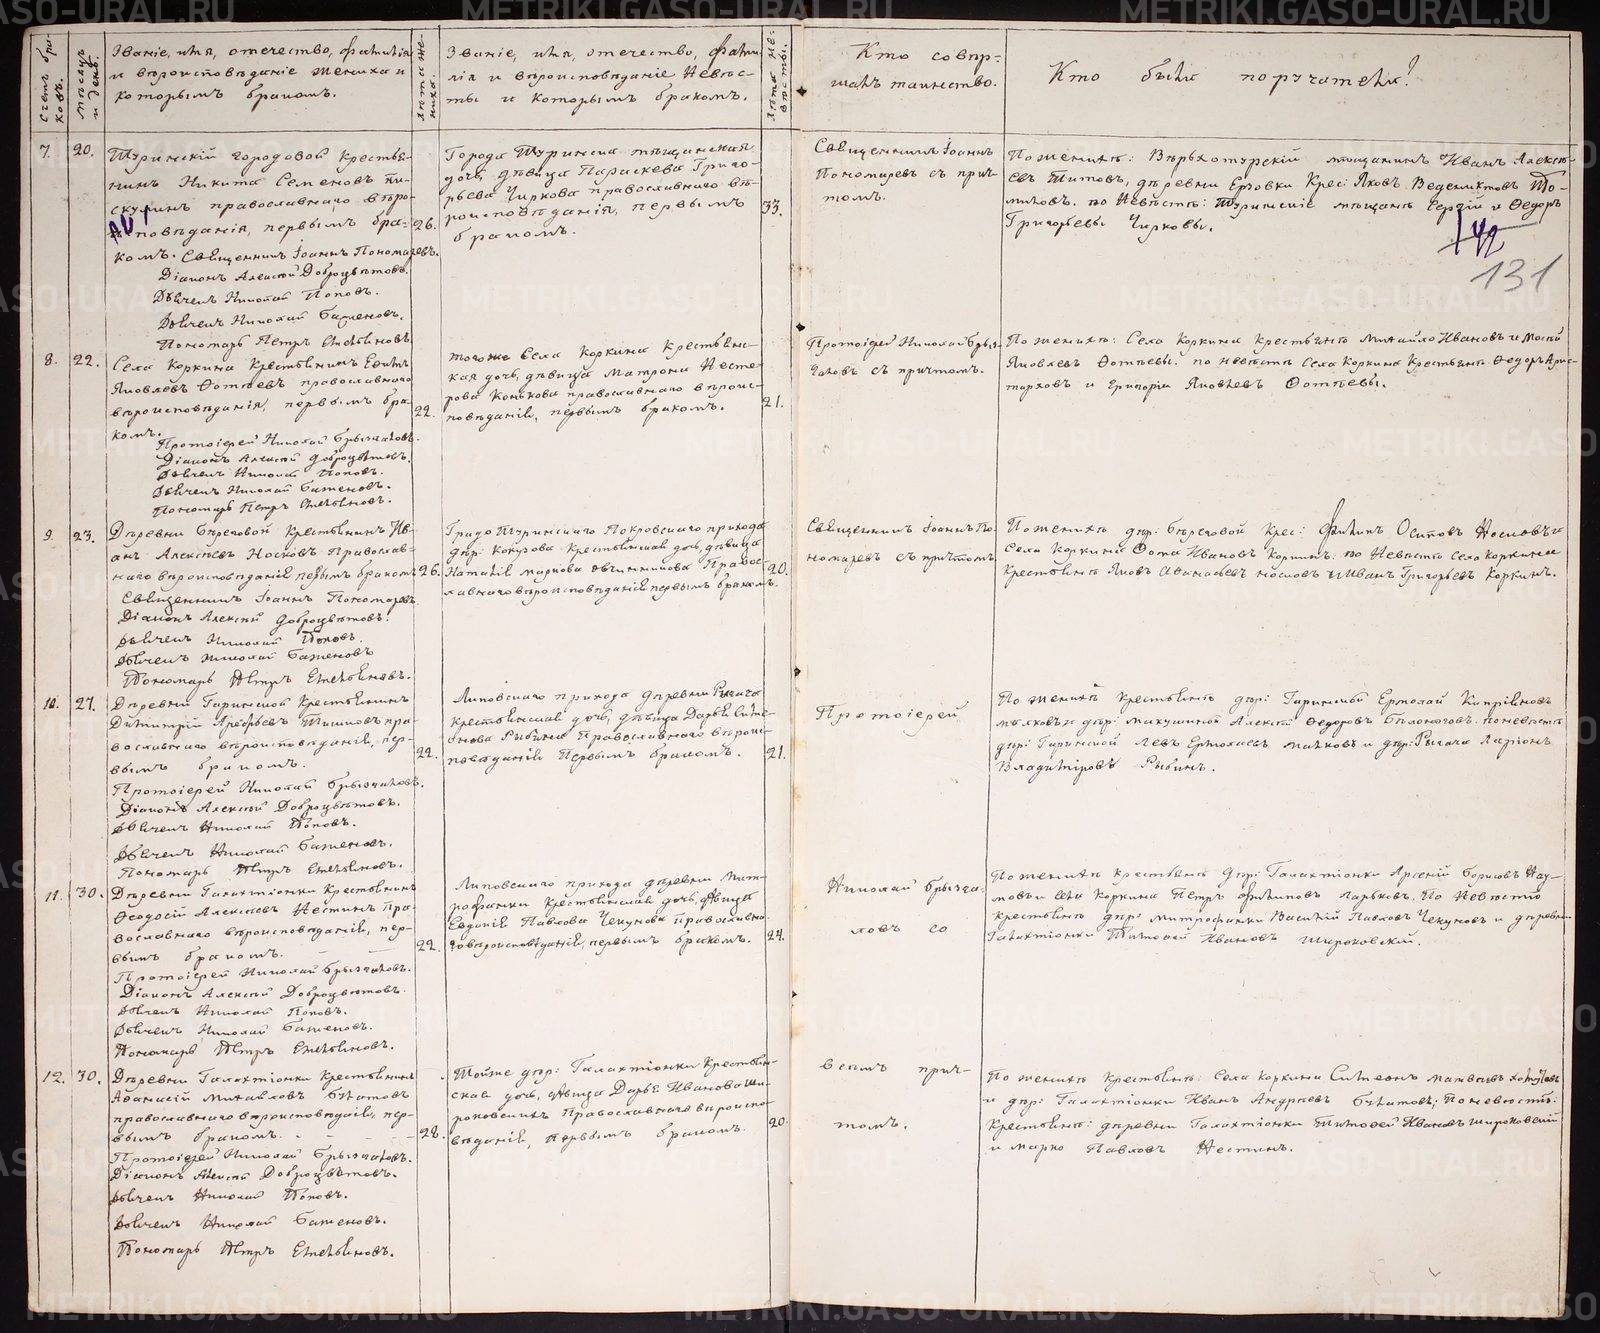 Счетъ бра-
ковъ.
Мѣсяцъ
и день.
Званіе, имя, отечество, фамилія
и вѣроисповѣданіе жениха и
которымъ бракомъ.
Лѣта же-
ниха.
Званіе, имя, отечество, фами-
лія и вѣроисповѣданіе Невѣс-
ты и которымъ бракомъ.
Лѣта не-
вѣсты.
Кто совер-
шалъ таинство.
Кто были поручатели?
7. 20.
Туринскій городовой крестья-
нинъ Никита Семеновъ Пи-
скулинъ православнаго вѣро-
исповѣданія, первымъ бра-
комъ. Священникъ Іоаннъ Пономаревъ.
Діаконъ Алексѣй Доброцвѣтовъ.
Дьячекъ Николай Поповъ.
Дьячекъ Николай Баженовъ.
Пономарь Петръ Емельяновъ.
26.
Города Туринска мѣщанская
дочь, дѣвица Параскева Григо-
рьева Чиркова православнаго вѣ-
роисповѣданія, первымъ
бракомъ.
33.
Священникъ Іоаннъ
Пономаревъ съ прич-
томъ.
По женихѣ: Верхотурскій мѣщанинъ Иванъ Алексѣ-
евъ Титовъ, деревни Ерзовки Крес: Яковъ Веденихтовъ То-
миловъ. по Невѣстѣ: Туринскіе мѣщане Сергѣй и Ѳедоръ
Григорьевы Чирковы.
142
131
8. 22.
Села Коркина Крестьянинъ Ефимъ
Яковлевъ Ѳотѣевъ православнаго
вѣроисповѣданія, первымъ бра-
комъ.
Протоіерей Николай Брызгаловъ.
Діаконъ Алексѣй Доброцвѣтовъ.
Дьячекъ Николай Поповъ.
Дьячекъ Николай Баженовъ.
Пономарь Петръ Емельяновъ.
22.
тогоже Села Коркина Крестьянс-
кая дочь, дѣвица Матрона Несте-
рова Конькова православнаго вѣроис-
повѣданія, первымъ бракомъ.
21.
Протоіерей Николай Брыз-
галовъ съ причтомъ.
По женихѣ: Села Коркина Крестьяне Михайло Ивановъ и Моисѣй
Яковлевъ Ѳотѣевы. по невѣстѣ Села Коркина Крестьяне Ѳедоръ Арис-
тарховъ и Григорій Яковлевъ Ѳотѣевы.
9. 23.
Деревни Береговой Крестьянинъ Ив-
анъ Алексѣевъ Носковъ Православ-
наго вѣроисповѣданія первымъ бракомъ
Священникъ Іоаннъ Пономаревъ
Діаконъ Алексѣй Доброцвѣтовъ.
Дьячекъ Николай Поповъ.
Дьячекъ Николай Баженовъ
Пономарь Петръ Емельяновъ.
26.
Градо Туринскаго Покровскаго прихода
дер: Кокузова Крестьянская дочь, дѣвица
Наталія Маркова Овчинникова Правос-
лавнаго вѣроисповѣданія первымъ бракомъ.
20.
Священникъ Іоаннъ По-
номаревъ съ причтомъ
По женихѣ дер: Береговой Крес: Филипъ Осиповъ Носковъ и
Села Коркина Ѳома Ивановъ Коркинъ: по Невѣстѣ села Коркина
Крестьяне Яковъ Аѳанасьевъ Носковъ и Иванъ Григорьевъ Коркинъ.
10. 27.
Деревни Гаринской Крестьянинъ
Димитрій Арефьевъ Тишковъ пра-
вославнаго вѣроисповѣданія, пер-
вымъ бракомъ.
Протоіерей Николай Брызгаловъ.
Діаконъ Алексѣй Доброцвѣтовъ.
Дьячекъ Николай Поповъ.
Дьячекъ Николай Баженовъ.
Пономарь Петръ Емельяновъ.
22.
Липовскаго прихода деревни Рычага
крестьянская дочь, дѣвица Дарья Симе-
онова Рыбина Православнаго вѣроис-
повѣданія Первымъ бракомъ.
21.
Протоіерей
По женихѣ крестьяне дер: Гаринской Ермолай Кипріяновъ
Малковъ и дер: Микушиной Алексѣй Ѳедоровъ Бѣлоноговъ. по невѣстѣ
дер: Гаринской Левъ Ермолаевъ Малковъ и дер: Рычага Ларіонъ
Владиміровъ Рыбинъ.
11. 30.
Деревни Галахтіонки Крестьянинъ
Ѳеодосій Алексѣевъ Нестинъ Пра-
вославнаго вѣроисповѣданія, пер-
вымъ бракомъ.
Протоіерей Николай Брызгаловъ.
Діаконъ Алексѣй Доброцвѣтовъ.
Дьячекъ Николай Поповъ.
Дьячекъ Николай Баженовъ.
Пономарь Петръ Емельяновъ.
22.
Липовскаго прихода деревни Мит-
рофанки Крестьянская дочь, дѣвица
Евдокія Павлова Чекунова православна-
го вѣроисповѣданія, первымъ бракомъ.
24.
Николай Брызга-
ловъ со
По женихѣ крестьяне дер: Галахтіонки Арсеній Борисовъ Нау-
мовъ и села Коркина Петръ Филиповъ Ларьковъ. По Невѣстѣ
крестьяне дер: Митрофанки Василій Павловъ Чекуновъ и деревни
Галахтіонки Тимофей Ивановъ Широковскій.
12. 30.
Деревни Галахтіонки Крестьянинъ
Аѳанасій Михайловъ Булатовъ
православнаго вѣроисповѣданія, пер-
вымъ бракомъ.
Протоіерей Николай Брызгаловъ.
Діаконъ Алексѣй Доброцвѣтовъ.
Дьячекъ Николай Поповъ.
Дьячекъ Николай Баженовъ.
Пономарь Петръ Емельяновъ.
28.
Тойже дер: Галахтіонки Крестьян-
ская дочь, дѣвица Дарья Иванова Ши-
роковскихъ Православнаго вѣроиспо-
вѣданія, Первымъ бракомъ.
20.
всемъ прич-
томъ.
По женихѣ Крестьяне: Села Коркина Симеонъ Матвѣевъ
и дер: Галахтіонки Иванъ Андреевъ Булатовъ; По невѣстѣ:
Крестьяне: деревни Галахтіонки Тимофей Ивановъ Широковскій
и Марко Павловъ Нестинъ.
METRIKI.GASO-URAL.RU